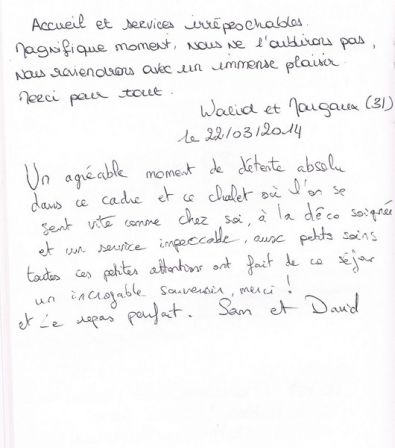 Accueil et services irréprochables.
Magnifique moment, nous ne l'oublirons pas,
nous reviendrons avec un immense plaisir.
Merci pour tout.
Walid et (31)
le 22/03/2014
Un agréable moment de détente absolu
dans ce cadre et ce chalet où l'on se
sent vite comme chez soi, à la déco soignée
et un service impeccable, aux petits soins
toutes ces petites attentions ont fait de ce séjour
un incroyable souvenir, merci !
et Le repas parfait. Sam et David